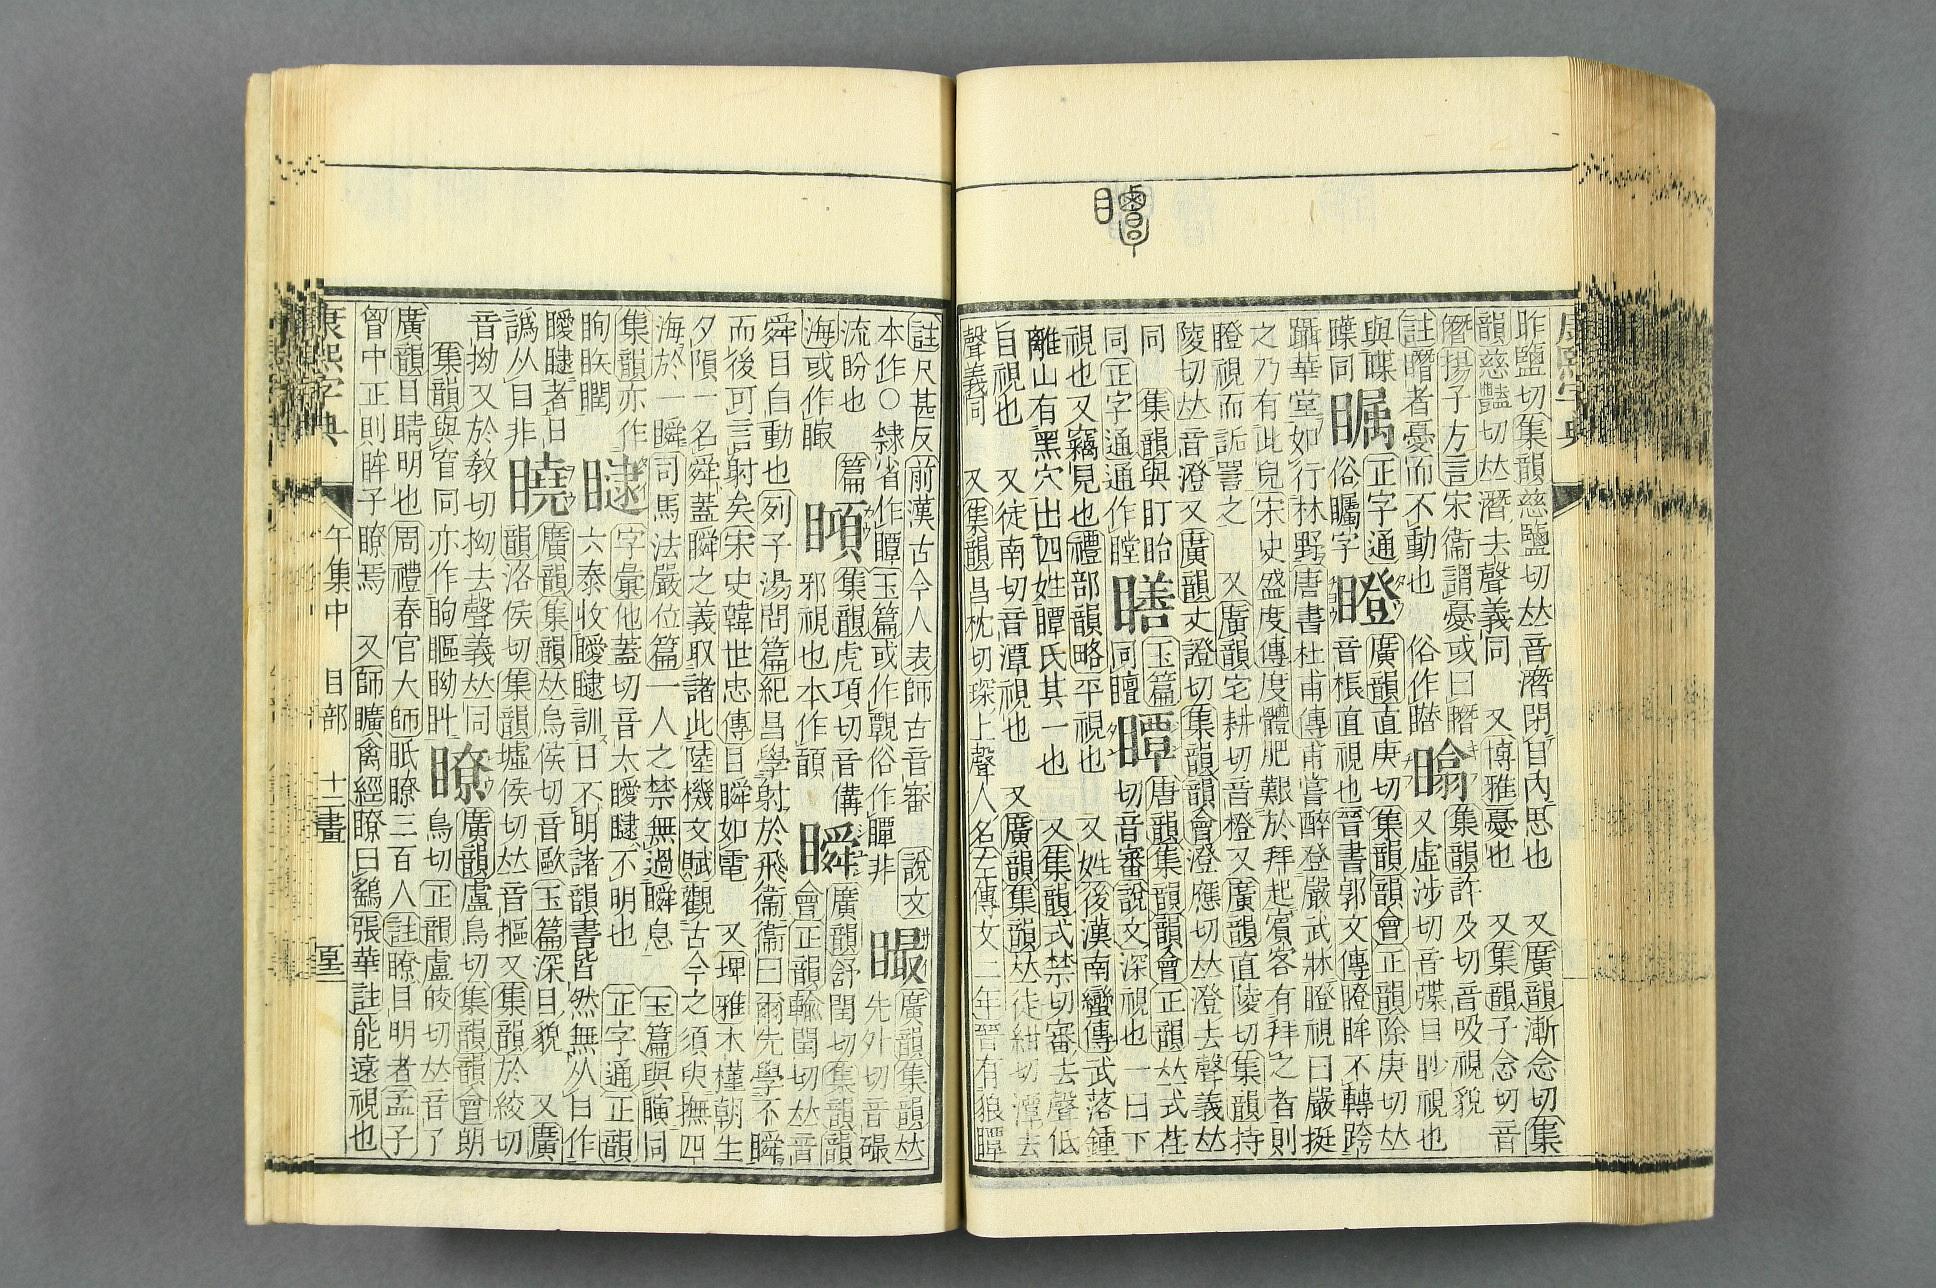 昨鹽切集韻慈鹽切𠀤音潛閉目內思也 又廣韻漸念切集
韻慈豔切𠀤潛去聲義同 又博雅憂也 又集韻子念切音
僭揚子方言宋衞謂憂或曰 集韻許及切音吸視貌
註 者憂而不動也 俗作 又虛涉切音弽目眇視也
與瞸 瞩 正字通 瞪 廣韻直庚切集韻韻會正韻除庚切𠀤
瞸同 俗矚字 音棖直視也晉書郭文傳瞪眸不轉跨
躡華堂如行林野唐書杜甫傳甫嘗醉登嚴武牀瞪視曰嚴挺
之乃有此兒宋史盛度傳度體肥艱於拜起賓客有拜之者則
瞪視而詬詈之 又廣韻宅耕切音橙又廣韻直陵切集韻持
陵切𠀤音澄 又廣韻丈證切集韻韻會澄應切𠀤澄去聲義𠀤
同 集韻與盯眙 玉篇 瞫 唐韻集韻韻會正韻𠀤式荏
同 正字通通作瞠 同 切音審說文深視也一曰下
視也又竊見也禮部韻略平視也 又姓後漢南蠻傳武落鍾
離山有黑穴出四姓瞫氏其一也 又集韻式禁切審去聲低
自視也 又徒南切音潭視也 又廣韻集韻𠀤徒紺切潭去
聲義同 又集韻昌枕切琛上聲人名左傳文二年晉有狼瞫
註尺甚反前漢古今人表師古音審 說文 廣韻集韻𠀤
本作 ○隸省作瞫玉篇或作 俗作 非 先外切音碅
流盼也 篇海或作 集韻虎項切音傋 瞬 廣韻舒閏切集韻韻
邪視也本作 會正韻輸閏切𠀤音
舜目自動也列子湯問篇紀昌學射於飛衞衞曰爾先學不瞬
而後可言射矣宋史韓世忠傳目瞬如電 又埤雅木槿朝生
夕隕一名舜蓋瞬之義取諸此陸機文賦觀古今之須臾撫四
海於一瞬司馬法嚴位篇一人之禁無過瞬息 玉篇與瞚同
集韻亦作 字彙他蓋切音太 不明也 正字通正韻
眴眣瞤 六泰收 訓目不明諸韻書皆然無从目作
者曰 廣韻集韻𠀤烏侯切音歐玉篇深目貌 又廣
譌从目非 曉 韻洛侯切集韻墟侯切𠀤音摳又集韻於絞切
音拗又於敎切拗去聲義𠀤同 瞭 廣韻盧鳥切集韻韻會朗
集韻與窅同亦作眴瞘眑 鳥切正韻盧皎切𠀤音了
廣韻目睛明也周禮春官大師眡瞭三百人註瞭目明者孟子
曾中正則眸子瞭焉 又師曠禽經瞭曰鷂張華註能遠視也
康熙字典 午集中 目部 十二畫